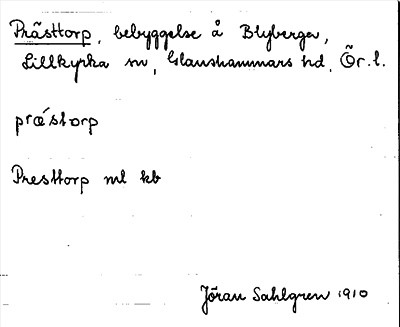 Prästtorp, bebyggelse å Blyberga,
Lillkyrka sn, Glanshammars hd, Ör. l.
præ´storp
Presttorp ml kb
Jöran Sahlgren 1910